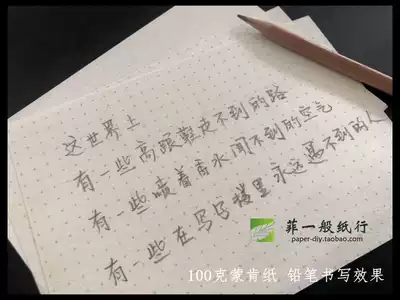 这世界上
有一些高跟鞋走不到的路
有一些喷着香水闻不到的空气
有一些在写字楼里永远遇不到的人
菲一般纸行
paper-diy.taobao.com
100克蒙肯纸 铅笔书写效果